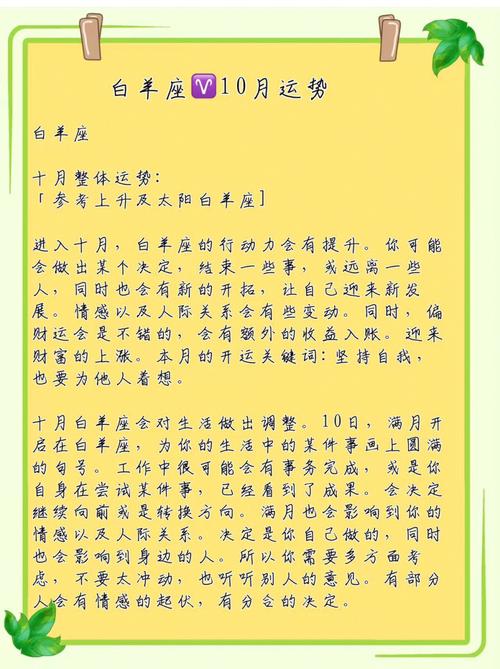 白羊座♈10月运势
白羊座
十月整体运势:
「参考上升及太阳白羊座]
进入十月，白羊座的行动力会有提升。你可能
会做出某个决定，结束一些事，或远离一些
人，同时也会有新的开拓，让自己迎来新发
展。情感以及人际关系会有些变动。同时，偏
财运会是不错的，会有额外的收益入账。迎来
财富的上涨。本月的开运关键词:坚持自我，
也要为他人着想。
十月白羊座会对生活做出调整。10日，满月开
启在白羊座，为你的生活中的某件事画上圆满
的句号。工作中很可能会有事务完成，或是你
自身在尝试某件事，已经看到了成果。会决定
继续向前或是转换方向。满月也会影响到你的
情感以及人际关系。决定是你自己做的，同时
也会影响到身边的人。所以你需要多方面考
虑，不要太冲动，也听听别人的意见。有部分
人会有情感的起伏，有分合的决定。